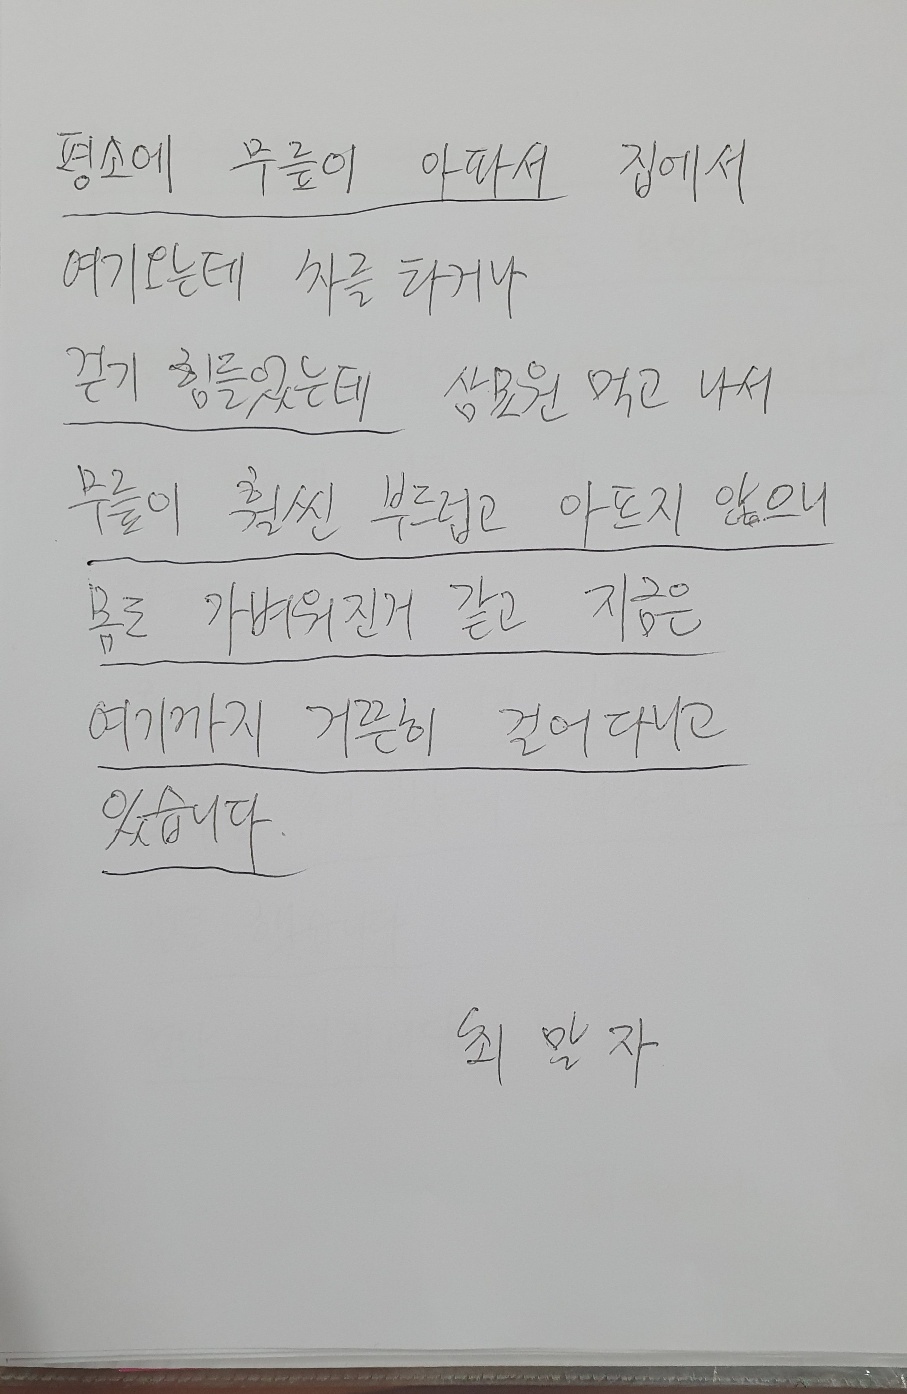 평소에 무릎이 아파서 집에서
여기오는데 차를 타거나
걷기 힘들었는데 삼모원 먹고 나서
무릎이 훨씬 부드럽고 아프지 않으니
몸도 가벼워진거 같고 지금은
여기까지 거뜬히 걸어다니고
있습니다.
최 말 자